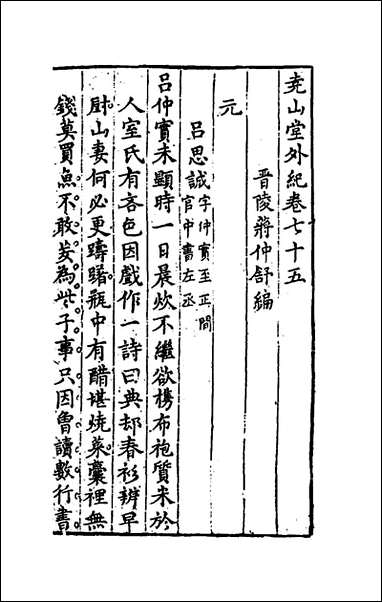 尭山堂外紀卷七十五
晋陵蔣仲舒編
元
呂思誠字仲實至正間
官中書左丞
呂仲實未顯時一日晨炊不繼欲㩦布袍質米於
人室氏有吝色因戲作一詩曰典却春衫辨早
厨山妻何必更躊躇瓶中有醋堪燒菜囊裡無
錢莫買魚不敢妄為些子事只因曾讀數行書